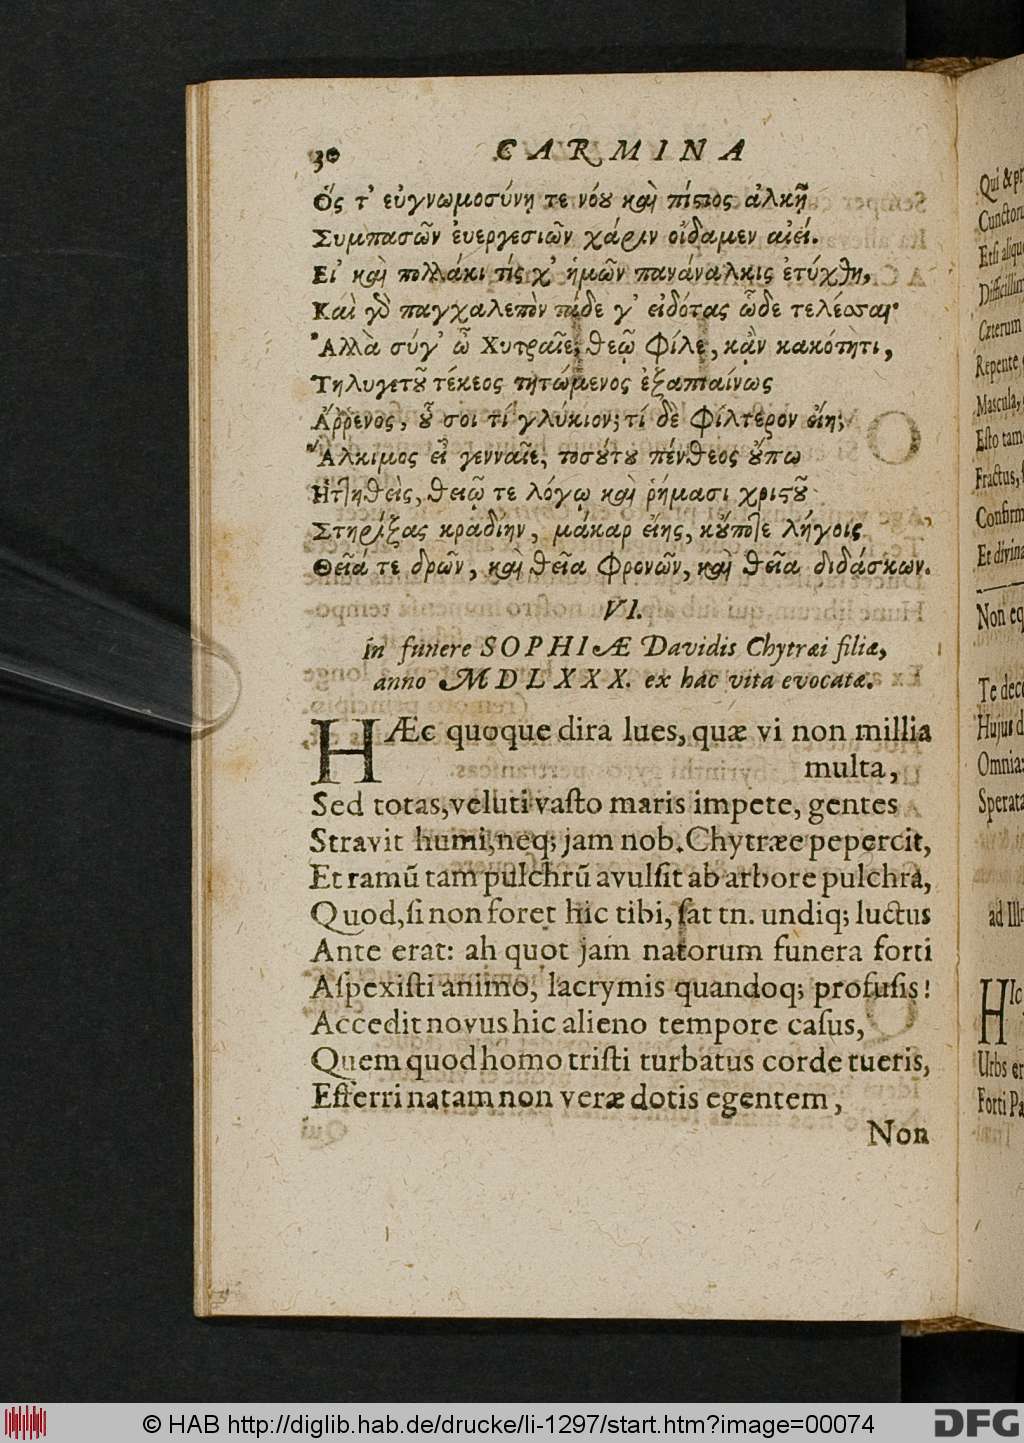 30 CARMINA
Ὅς τ' εὐγνωμοσύνῃ τε νόου καὶ πίστιος ἀλκῇ
Συμπασῶν ἐυεργεσιῶν χάριν οἴδαμεν αἰεί.
Εἰ καὶ πολλάκι τίς χ' ἡμῶν πανάναλκις ἐτύχθη,
Καὶ γὸ παγχαλεπὸν πάδε γ' εἰδότας ὧδε τελέσσαι·
Ἀλλὰ σύγ' ὦ Χυτραῖε, θεῷ Φίλε, κᾂν κακότητι,
Τηλυγέτου τέκεος τητώμενος ἐξαπιαίνως
Ἄῤῥενος, ὗ σοι τί γλύκιον; τί δὲ φίλτερον εἴη;
Ἄλκιμος εἶ γενναῖε, τοσούτου πένθεος οὔπω
Ἡττηθεὶς, θειῷ τε λόγῳ καὶ ῥήμασι χριστοῦ
Στηρίξας κραδιην, μάκαρ εἴης, κοὔποτε λήγοις
Θεῖά τε δρῶν, καὶ θεῖα φρονῶν, καὶ θεῖα διδάσκων.
VI.
in funere SOPHIÆ Davidis Chytræi filiæ,
anno MDLXXX. ex hac vita evocatæ.
HÆc quoque dira lues, quæ vi non millia
multa,
Sed totas, veluti vasto maris impete, gentes
Stravit humi, neq; jam nob. Chytræe pepercit,
Et ramū tam pulchrū avulsit ab arbore pulchra,
Quod, si non foret hic tibi, sat tn. undiq; luctus
Ante erat: ah quot jam natorum funera forti
Aspexisti animo, lacrymis quandoq; profusis!
Accedit novus hic alieno tempore casus,
Quem quod homo tristi turbatus corde tueris,
Efferri natam non veræ dotis egentem,
Non
Qui & pr
Cunctoru
Etsi aliqu
Difficillim
Cæterum
Repente
Mascula,
Esto tam
Fractus,
Confirm
Et divina
Non eq
Te dec
Hujus d
Omnia
Sperata
ad Illu
HIc
Urbs er
Forti Pa
© HAB http://diglib.hab.de/drucke/li-1297/start.htm?image=00074
DFG